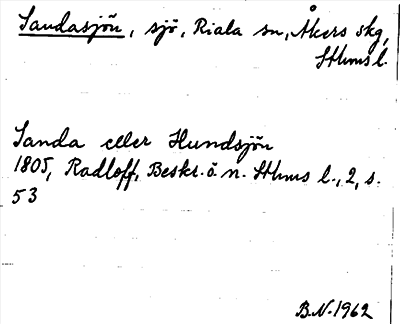 Sandasjön, sjö, Riala sn, Åkers skg,
Sthms l.
Sanda eller Hundsjön
1805, Radloff, Beskr. ö n. Sthms l., 2, s.
53
B.N. 1962